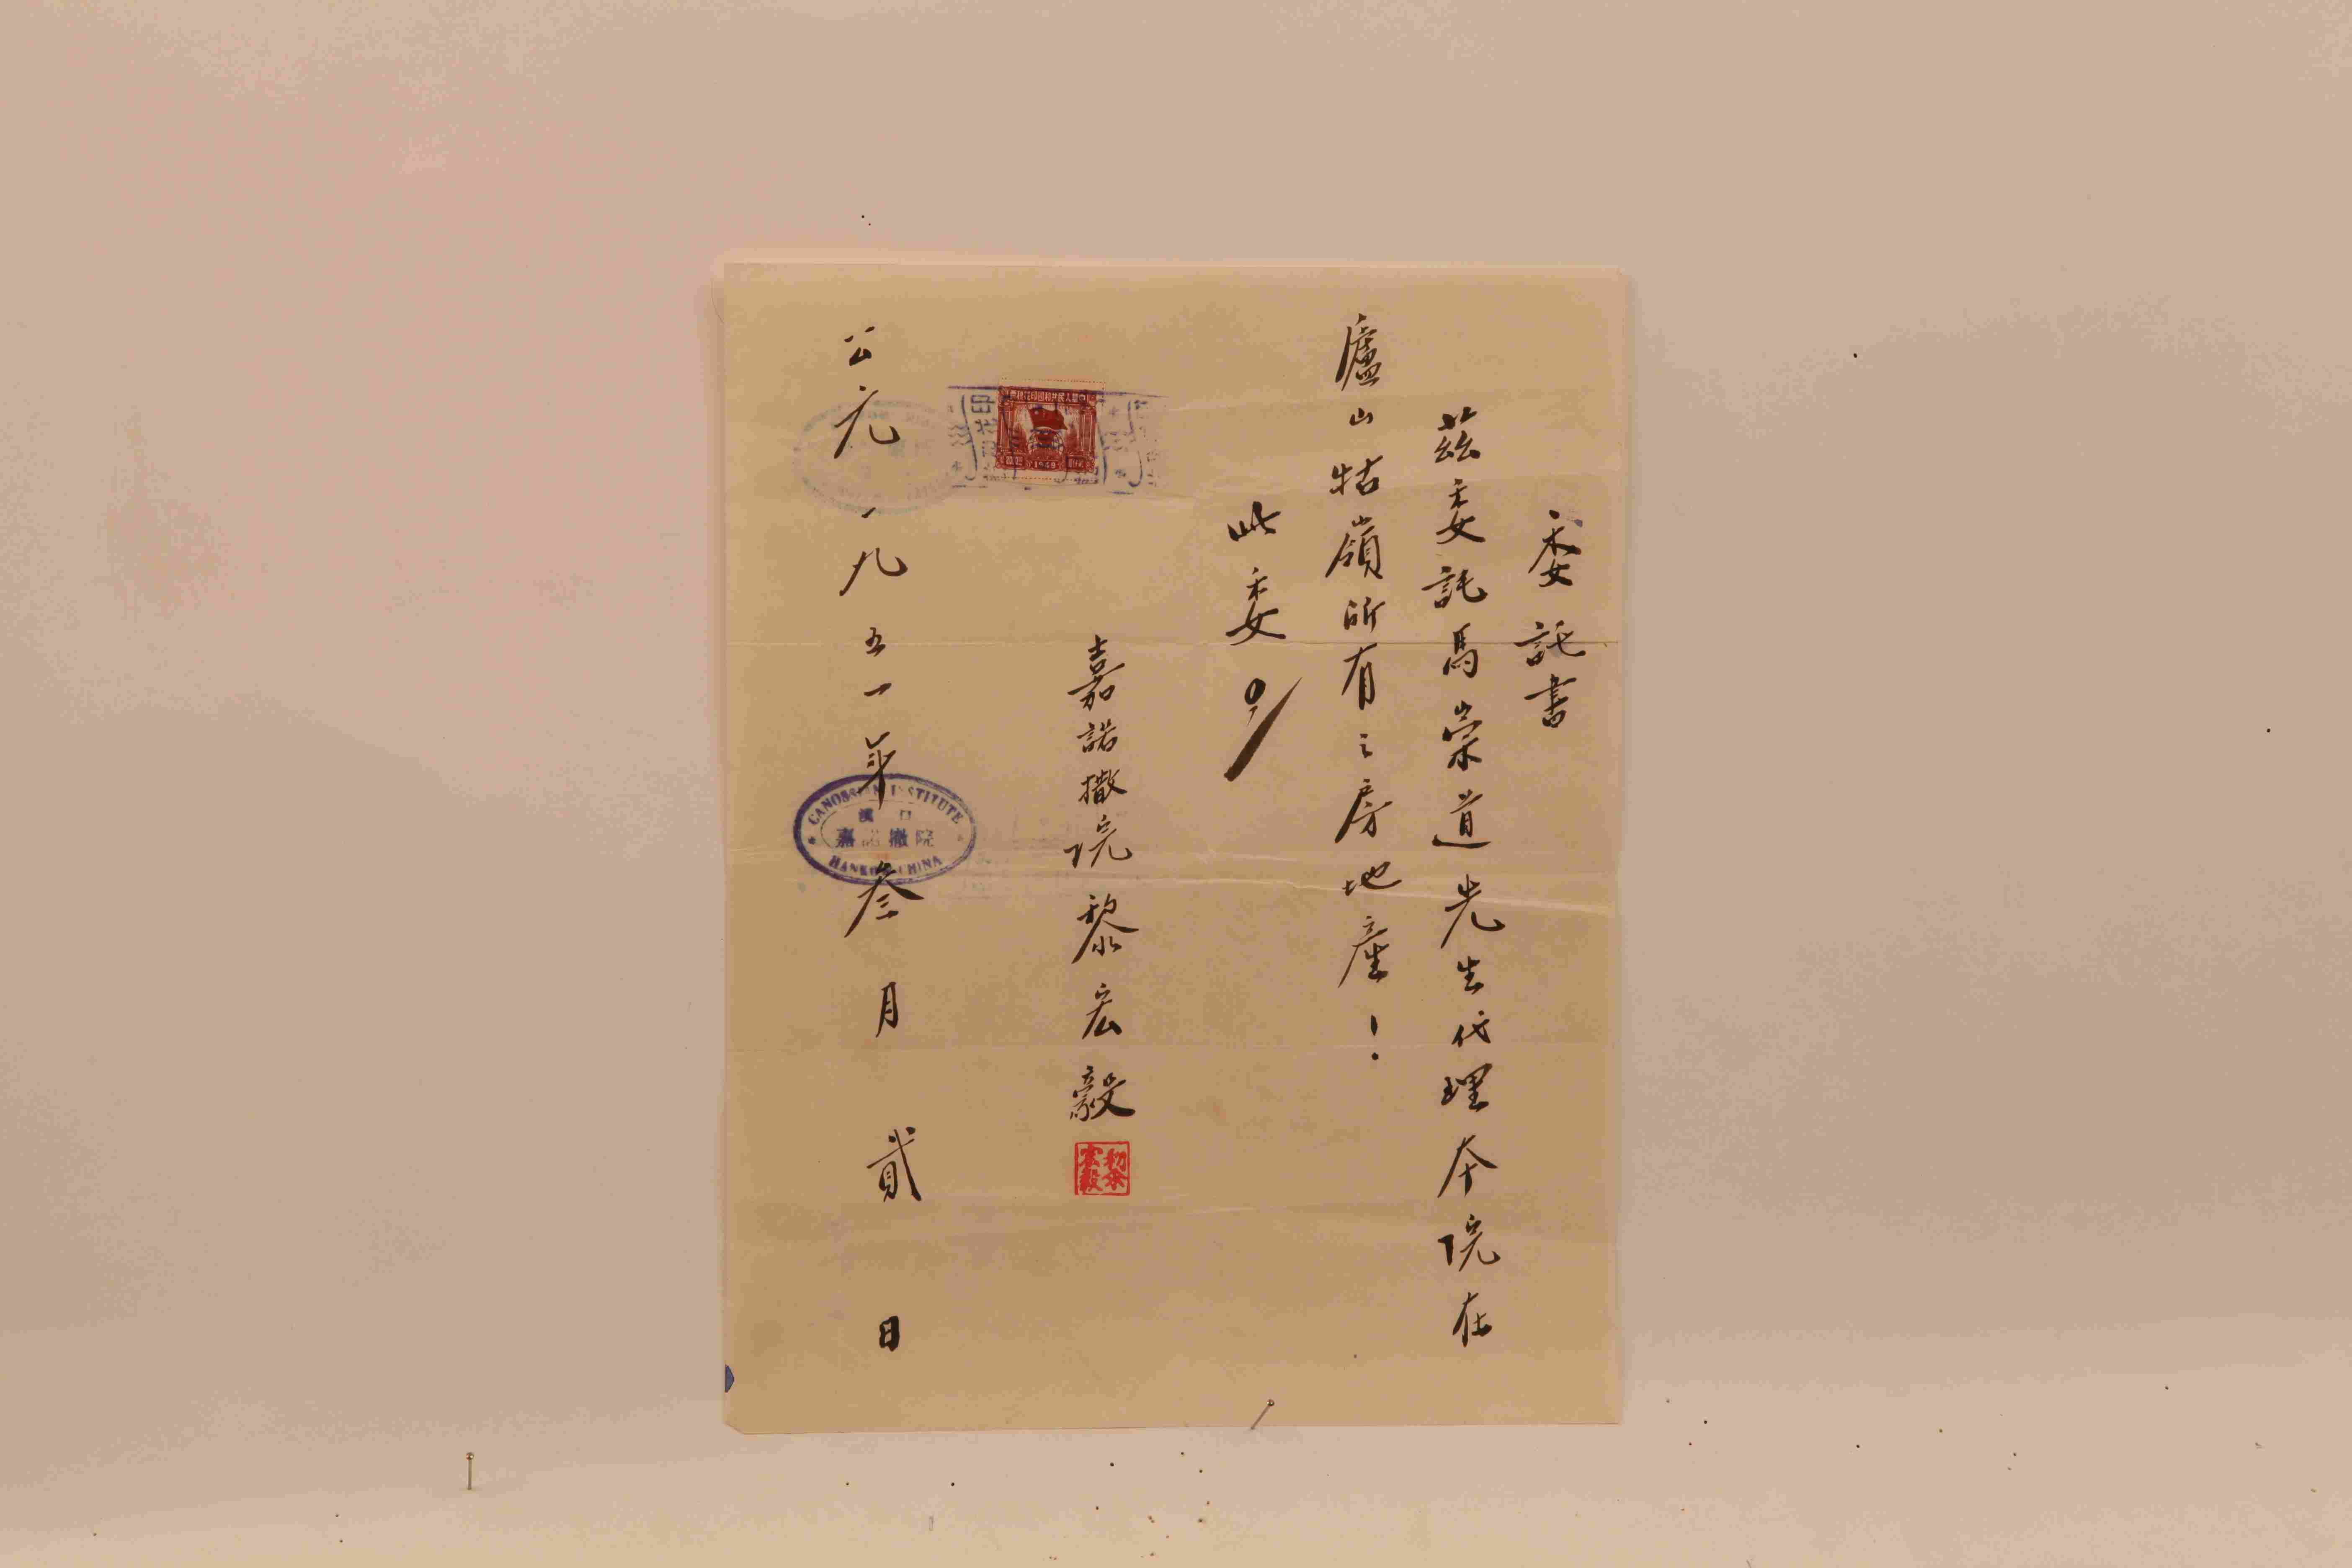 委託書
茲委託馬崇道先生代理本院在
廬山牯嶺所有之房地產！
此委
嘉諾撒院 黎宏毅
黎宏毅
1949
公元一九五一年叁月貳日
CANOSSIAN INSTITUTE
漢口
嘉諾撒院
HANKOW CHINA